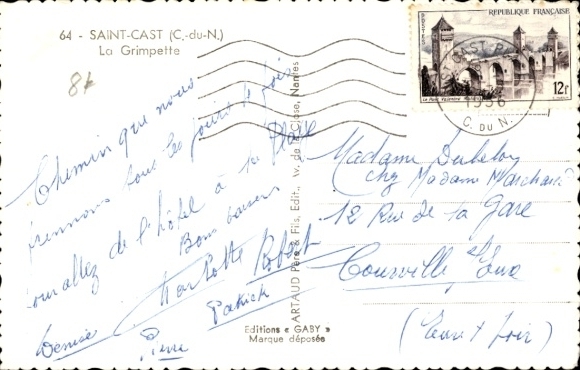 64 - SAINT-CAST (C.-du-N.)
La Grimpette
8k
Chemin que nous
prennons tous les jours 4 fois
pour allez de l'hôtel à la plage
Bons baisers
Charlotte Robert
Denise Patrick
Pierre
Editions « GABY »
Marque déposée
ARTAUD Père & Fils, Edit., W. de la Close, Nantes
REPUBLIQUE FRANÇAISE
POSTES
12f
1956
C. DU N.
Madame Dubeloy
chez Madame Marchand
12 Rue de la Gare
Courville s/ Eure
(Eure & Loir)